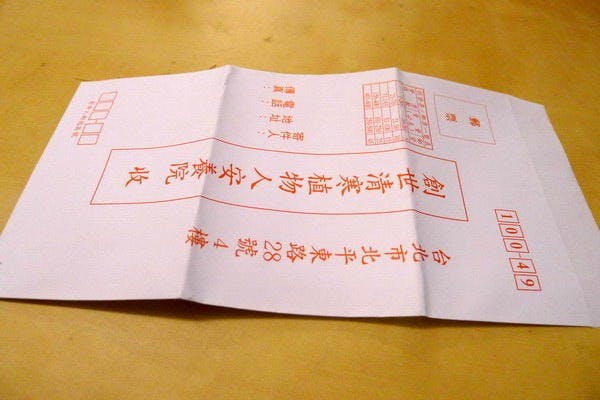 100-49
台北市北平東路28號4樓
創世清寒植物人安養院 收
郵票
寄件人：
地址：
電話：
傳真：